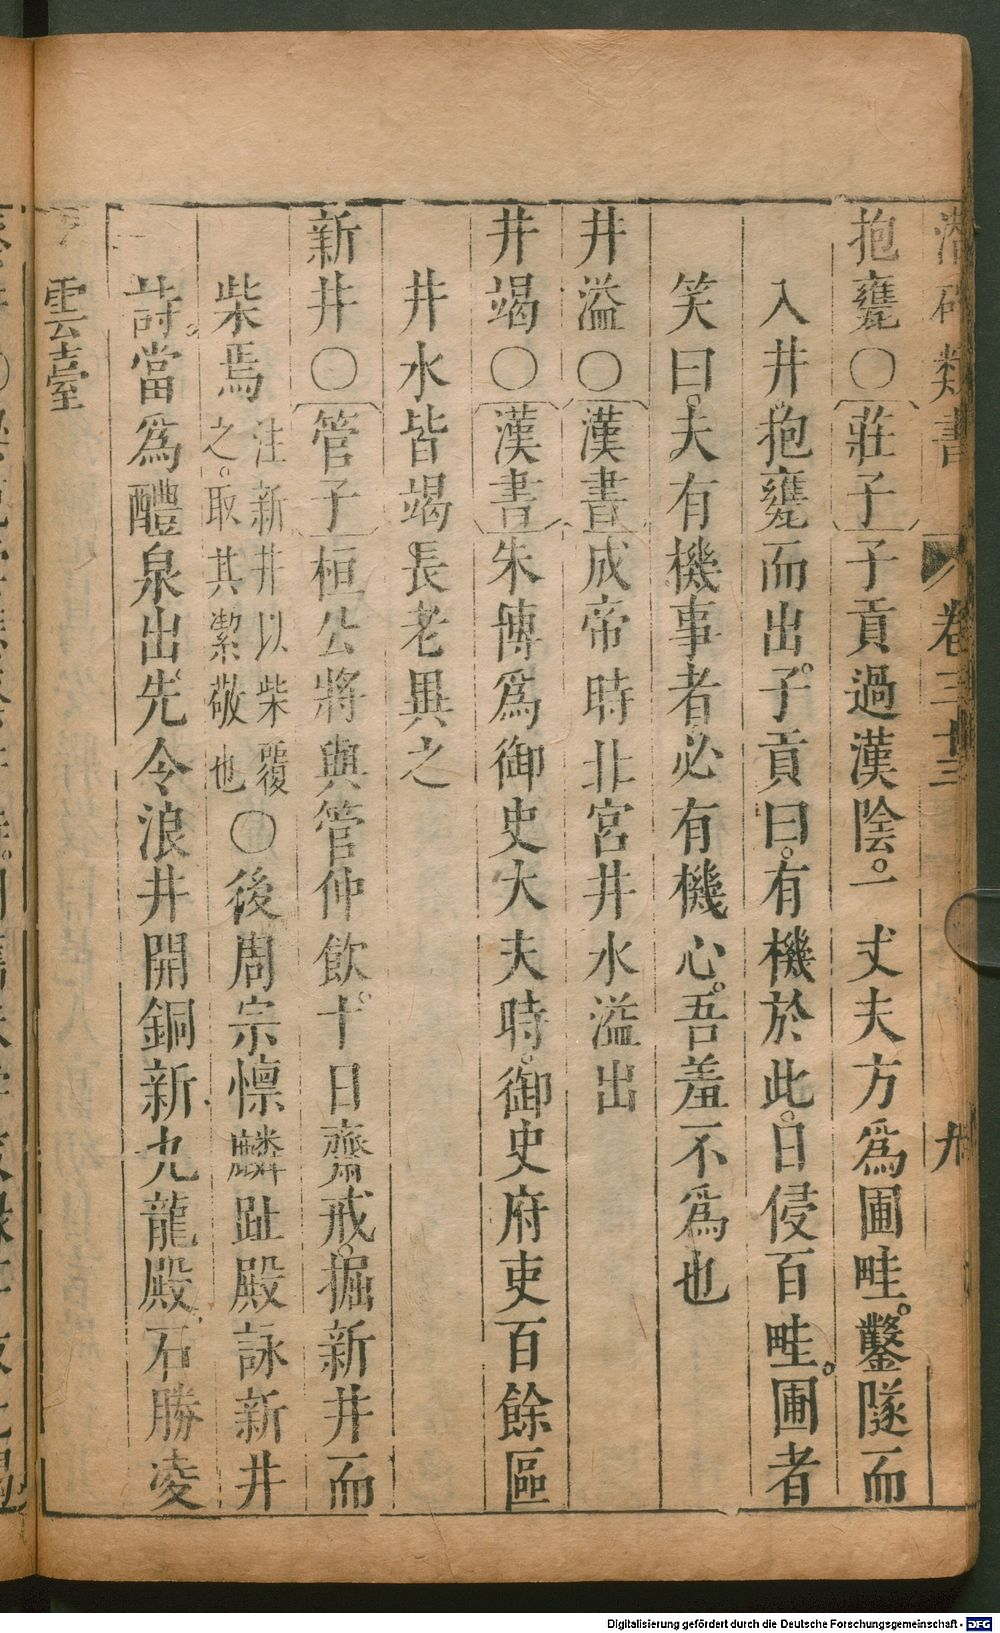 潛確類書 卷三十三 九
抱甕〇莊子子貢過漢陰。一丈夫方爲圃畦。鑿隧而
入井。抱甕而出。子貢曰。有機於此。日侵百畦。圃者
笑曰。夫有機事者必有機心。吾羞不爲也
井溢〇漢書成帝時北宮井水溢出
井竭〇漢書朱博爲御史大夫時。御史府吏百餘區
井水皆竭。長老異之
新井〇管子桓公將與管仲飲。十日齋戒。掘新井而
柴焉注新井以柴覆之。取其潔敬也〇後周宗懍麟趾殿詠新井
詩。當爲醴泉出先令浪井開銅新九龍殿石勝凌
雲臺
Digitalisierung gefördert durch die Deutsche Forschungsgemeinschaft - DFG